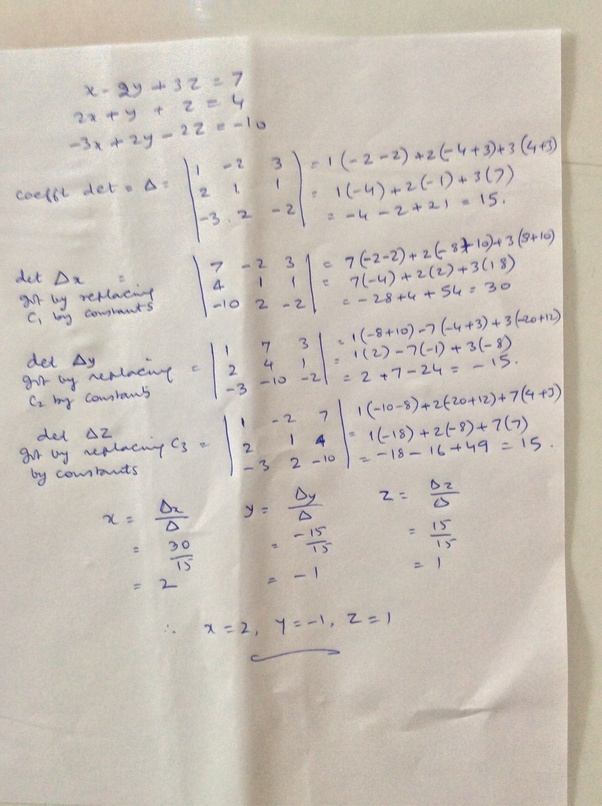 x - 2y + 3z = 7
2x + y + z = 4
-3x + 2y - 2z = -10
coefft det = Δ = | 1 -2 3 | = 1(-2-2)+2(-4+3)+3(4+3)
| 2 1 1 | = 1(-4)+2(-1)+3(7)
| -3 2 -2 | = -4 -2 +21 = 15.
det Δx = | 7 -2 3 | = 7(-2-2)+2(-8+10)+3(8+10)
got by replacing | 4 1 1 | = 7(-4)+2(2)+3(18)
C1 by constants | -10 2 -2 | = -28+4+54 = 30
det Δy | 1 7 3 | = 1(-8+10)-7(-4+3)+3(-20+12)
got by replacing = | 2 4 1 | = 1(2)-7(-1)+3(-8)
C2 by constants | -3 -10 -2 | = 2+7-24 = -15.
det Δz | 1 -2 7 | 1(-10-8)+2(-20+12)+7(4+3)
got by replacing C3 = | 2 1 4 | = 1(-18)+2(-8)+7(7)
by constants | -3 2 -10 | = -18-16+49 = 15.
x = Δx/Δ y = Δy/Δ z = Δz/Δ
= 30/15 = -15/15 = 15/15
= 2 = -1 = 1
∴ x=2, y=-1, z=1